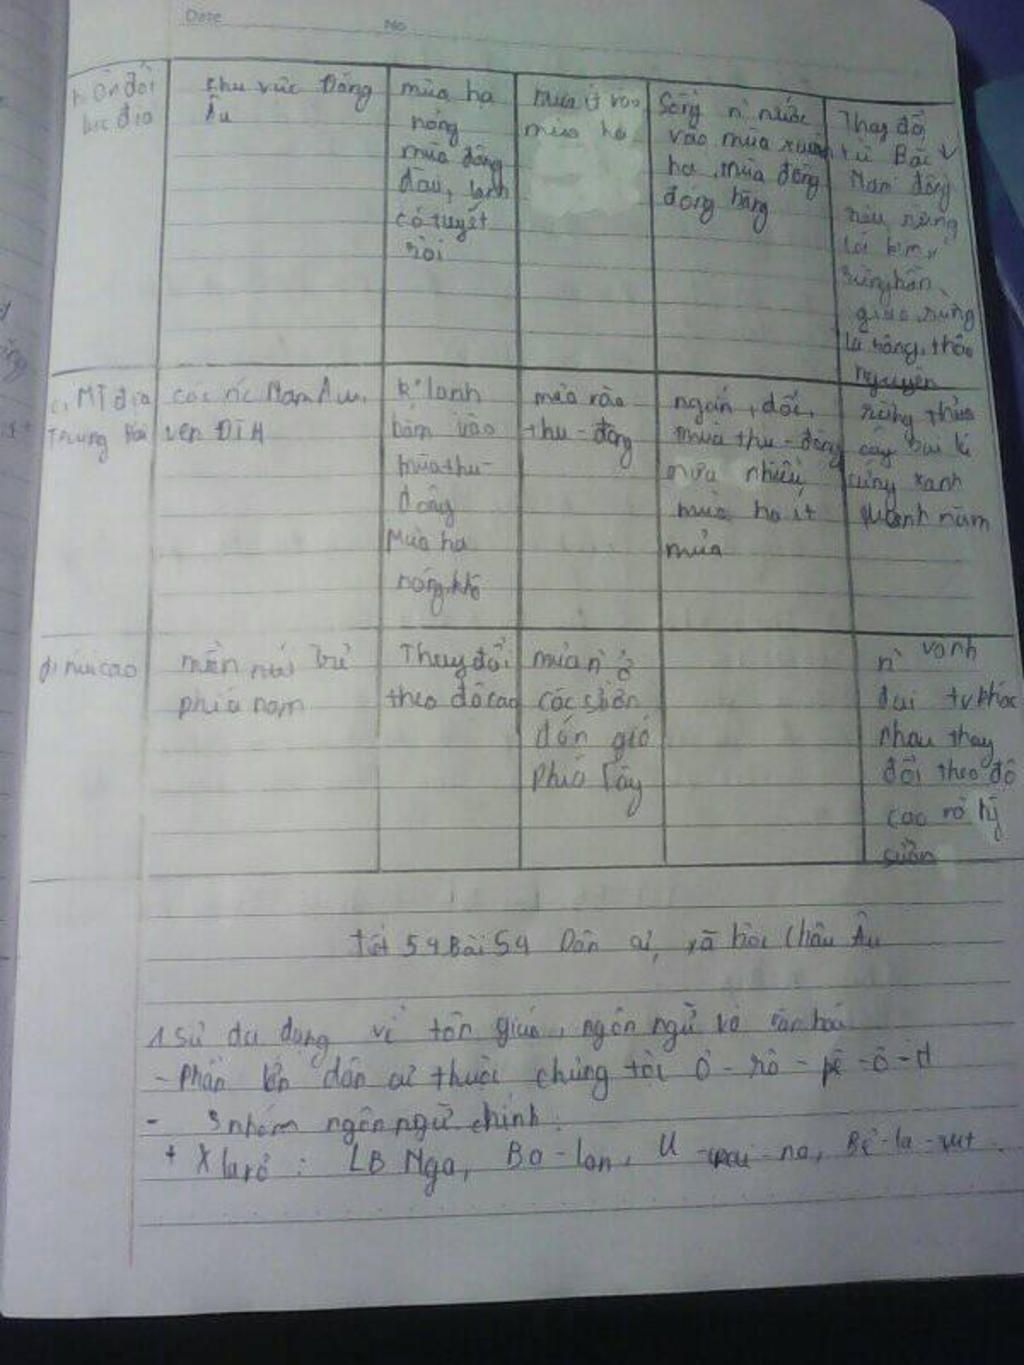 Date No
b, Ôn đới
lục địa
Khu vực Đông
Âu
mùa hạ
nóng
mùa đông
lạnh
có tuyết
rơi
mưa ít vào
mùa hạ
Sông n` nước
vào mùa xuân
hạ, mùa đông
đóng băng
Thay đổi
từ Bắc
Nam đồng
rêu, rừng
lá kim,
rừng hỗn
giao, rừng
lá rộng, thảo
nguyên
c, Mĩ địa
Trung Hải
các nc Nam Âu,
ven ĐTH
k' lạnh
lắm vào
mùa thu-
đông
Mùa hạ
nóng, khô
mưa rào
thu-đông
ngắn, dốc,
mùa thu-đông
mưa nhiều,
mùa hạ ít
mưa
rừng thưa
cây bụi lá
cứng xanh
quanh năm
d, núi cao
miền núi trẻ
phía nam
Thay đổi
theo độ cao
mưa n` ở
các sườn
đón gió
phía Tây
n` vành
đai tv khác
nhau thay
đổi theo độ
cao
sườn
Tiết 54 Bài 54 Dân cư, xã hội Châu Âu
1 Sự đa dạng về tôn giáo, ngôn ngữ và văn hóa
- Phần lớn dân cư thuộc chủng tộc Ơ-rô-pê-ô-it
- 3 nhóm ngôn ngữ chính:
+ Xlavơ: LB Nga, Ba-lan, U-crai-na, Bê-la-rut